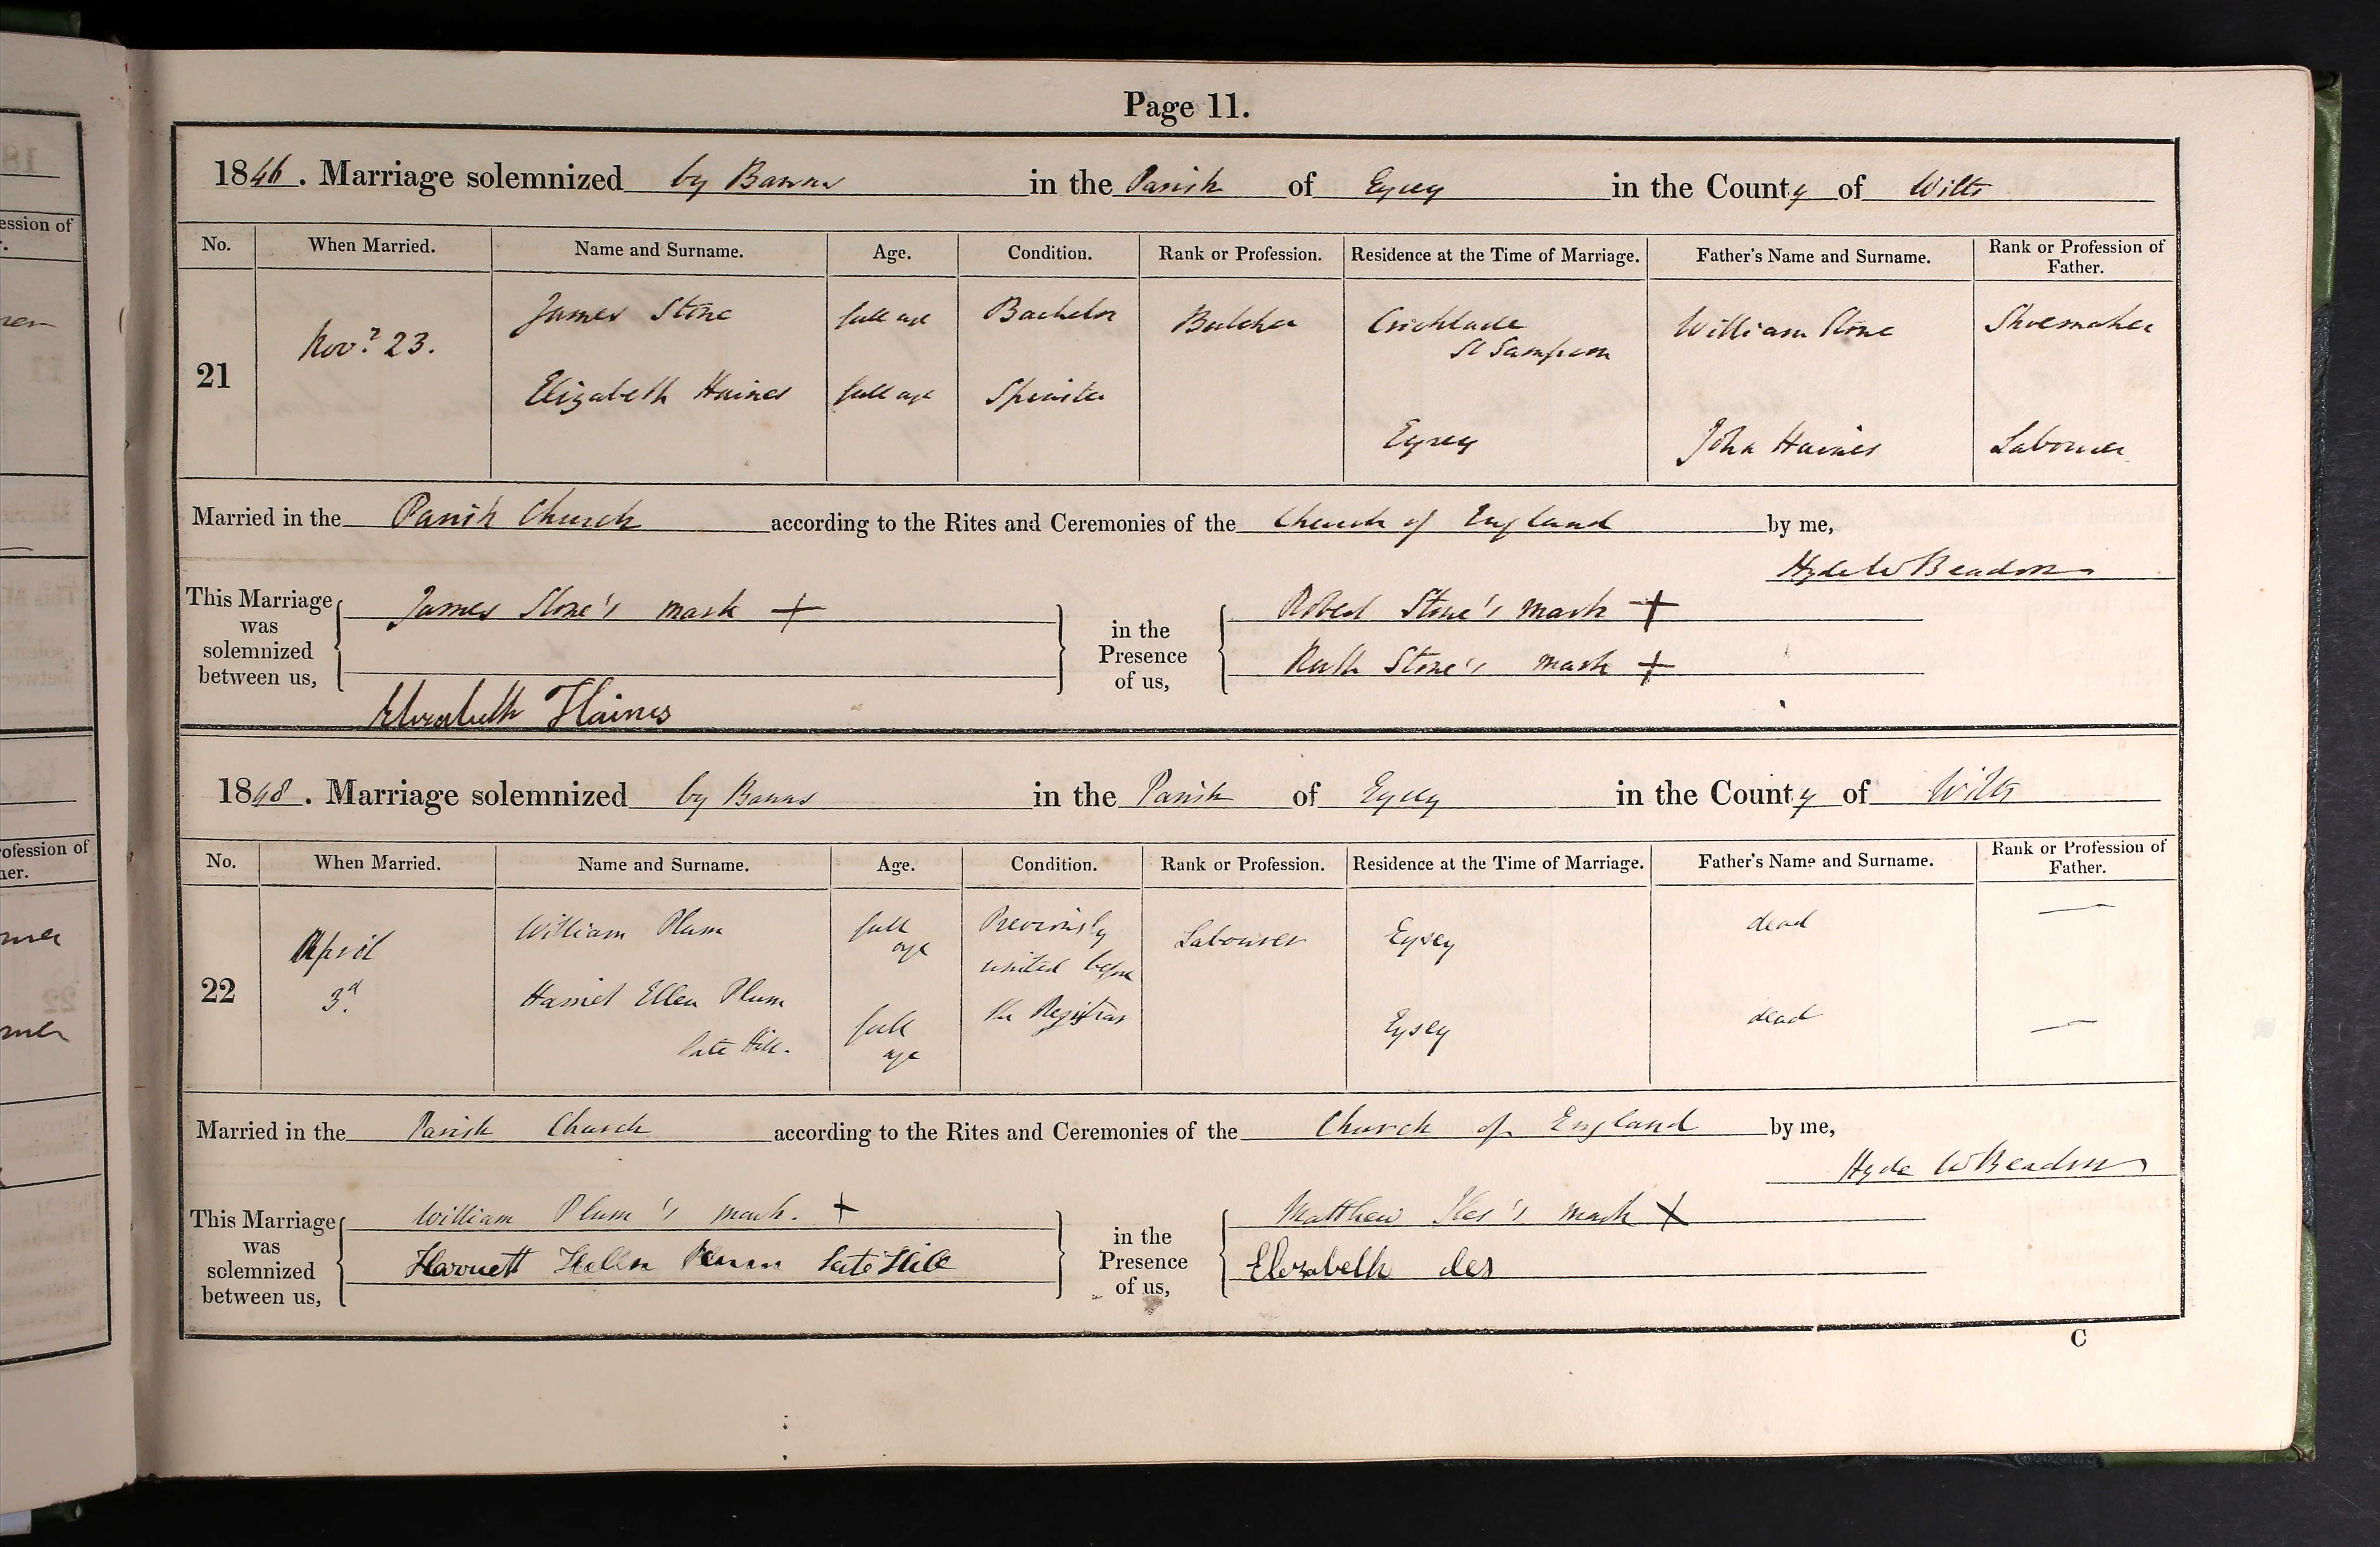 Page 11.
1846. Marriage solemnized by Banns in the Parish of Eysey in the County of Wilts
No. When Married. Name and Surname. Age. Condition. Rank or Profession. Residence at the Time of Marriage. Father's Name and Surname. Rank or Profession of Father.
21 Novr 23. James Stone full age Bachelor Butcher Cricklade St Sampson William Stone Shoemaker
Elizabeth Haines full age Spinster Eysey John Haines Labourer
Married in the Parish Church according to the Rites and Ceremonies of the Church of England by me,
Hyde W Beadon
This Marriage was solemnized between us, James Stone's mark + in the Presence of us, Robert Stone's mark +
Ruth Stone's mark +
Elizabeth Haines
1848. Marriage solemnized by Banns in the Parish of Eysey in the County of Wilts
No. When Married. Name and Surname. Age. Condition. Rank or Profession. Residence at the Time of Marriage. Father's Name and Surname. Rank or Profession of Father.
22 April 3d. William Plum full age Previously united before the Registrar Labourer Eysey dead —
Harriet Ellen Plum late Hill. full age Eysey dead —
Married in the Parish Church according to the Rites and Ceremonies of the Church of England by me,
Hyde W Beadon
This Marriage was solemnized between us, William Plum's mark. + in the Presence of us, Matthew Iles's mark X
Harruett Hellen Plum late Hill Elizabeth Iles
C